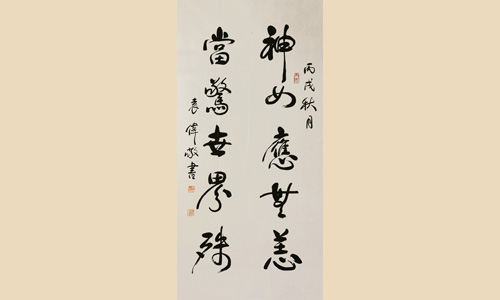 丙戌秋月
神女應無恙
當驚世界殊
袁偉敬書